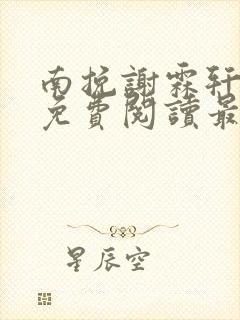 南挽謝霖軒
免費閱讀最
星辰空